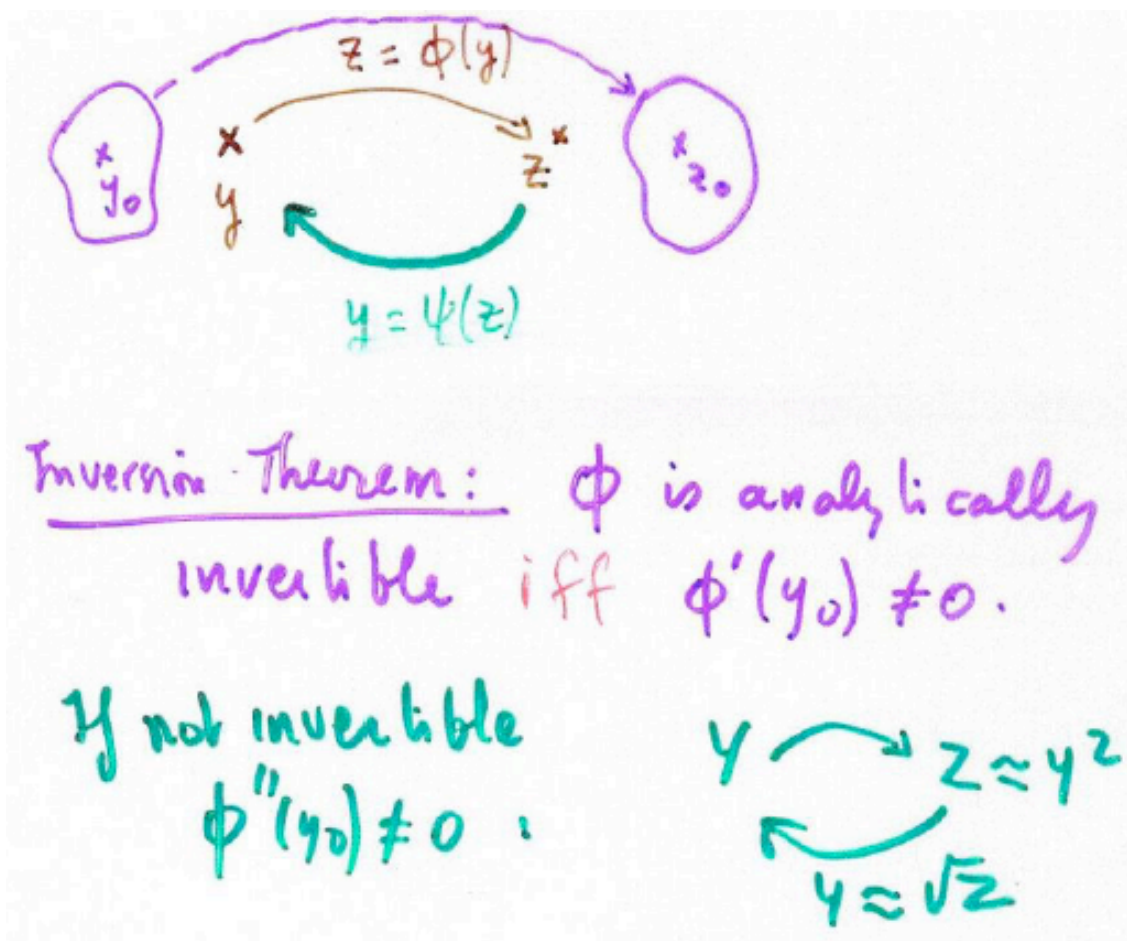 z = ϕ(y)
x x
y₀ y z z₀
y = ψ(z)
Inversion Theorem: ϕ is analytically
invertible iff ϕ'(y₀) ≠ 0.
If not invertible
ϕ''(y₀) ≠ 0 :
y z ≈ y²
y ≈ √z